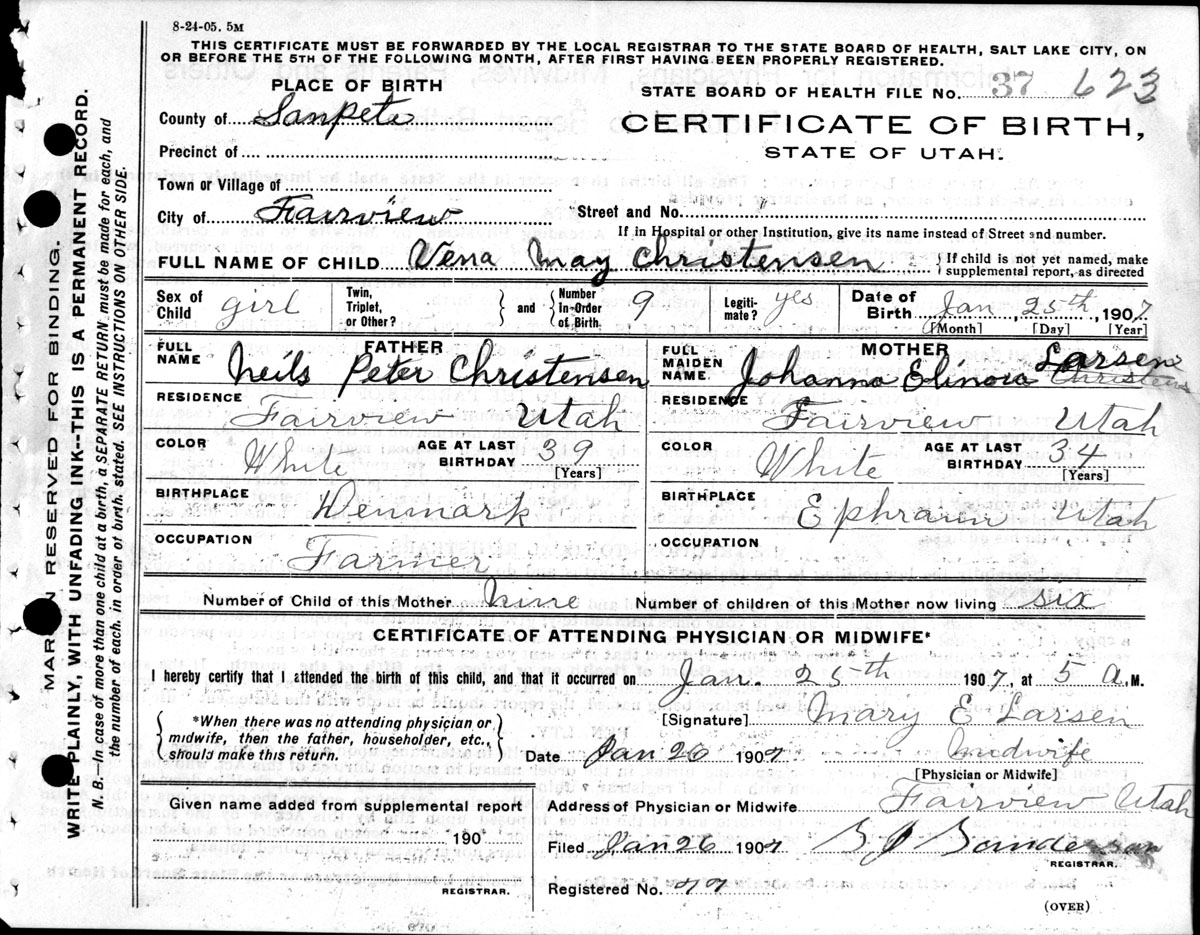 8-24-05. 5M
THIS CERTIFICATE MUST BE FORWARDED BY THE LOCAL REGISTRAR TO THE STATE BOARD OF HEALTH, SALT LAKE CITY, ON
OR BEFORE THE 5TH OF THE FOLLOWING MONTH, AFTER FIRST HAVING BEEN PROPERLY REGISTERED.
PLACE OF BIRTH
STATE BOARD OF HEALTH FILE No. 37 623
County of Sanpete
CERTIFICATE OF BIRTH,
STATE OF UTAH.
Precinct of
Town or Village of
City of Fairview Street and No.
If in Hospital or other Institution, give its name instead of Street and number.
FULL NAME OF CHILD Verna May Christensen { If child is not yet named, make supplemental report, as directed
Sex of Child girl Twin, Triplet, or Other? } and { Number in Order of Birth 9 Legitimate? yes Date of Birth Jan 25th, 1907
[Month] [Day] [Year]
FATHER MOTHER
FULL NAME Neils Peter Christensen FULL MAIDEN NAME Johanna Elinora Larsen Christens
RESIDENCE Fairview Utah RESIDENCE Fairview Utah
COLOR White AGE AT LAST BIRTHDAY 39 [Years] COLOR White AGE AT LAST BIRTHDAY 34 [Years]
BIRTHPLACE Denmark BIRTHPLACE Ephraim Utah
OCCUPATION Farmer OCCUPATION
Number of Child of this Mother nine Number of children of this Mother now living six
CERTIFICATE OF ATTENDING PHYSICIAN OR MIDWIFE*
I hereby certify that I attended the birth of this child, and that it occurred on Jan. 25th 1907, at 5 a. M.
{ *When there was no attending physician or midwife, then the father, householder, etc., should make this return. }
[Signature] Mary E Larsen
Date Jan 26 1907 midwife
[Physician or Midwife]
Given name added from supplemental report
190
REGISTRAR.
Address of Physician or Midwife Fairview Utah
Filed Jan 26 1907 Sanderson
REGISTRAR.
Registered No. 77
(OVER)
MARGIN RESERVED FOR BINDING.
WRITE PLAINLY, WITH UNFADING INK--THIS IS A PERMANENT RECORD.
N. B.—In case of more than one child at a birth, a SEPARATE RETURN must be made for each, and
the number of each, in order of birth, stated. SEE INSTRUCTIONS ON OTHER SIDE.